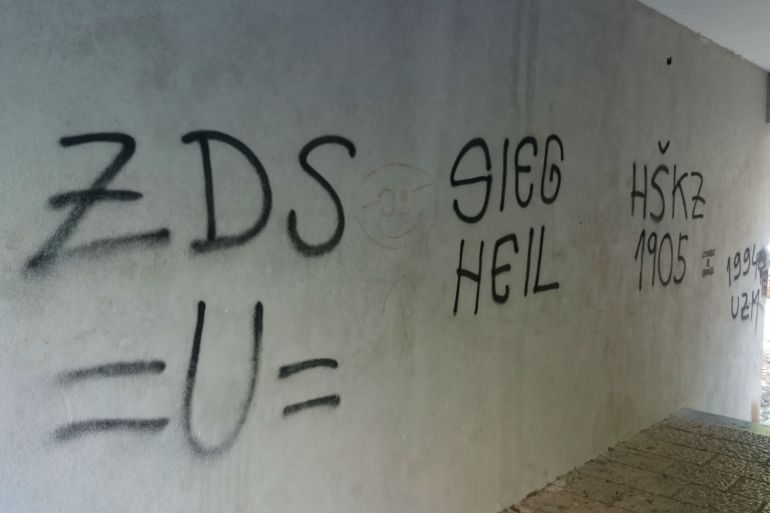 ZDS
=U=
SIEG
HEIL
HŠKZ
1905
1994
UZK